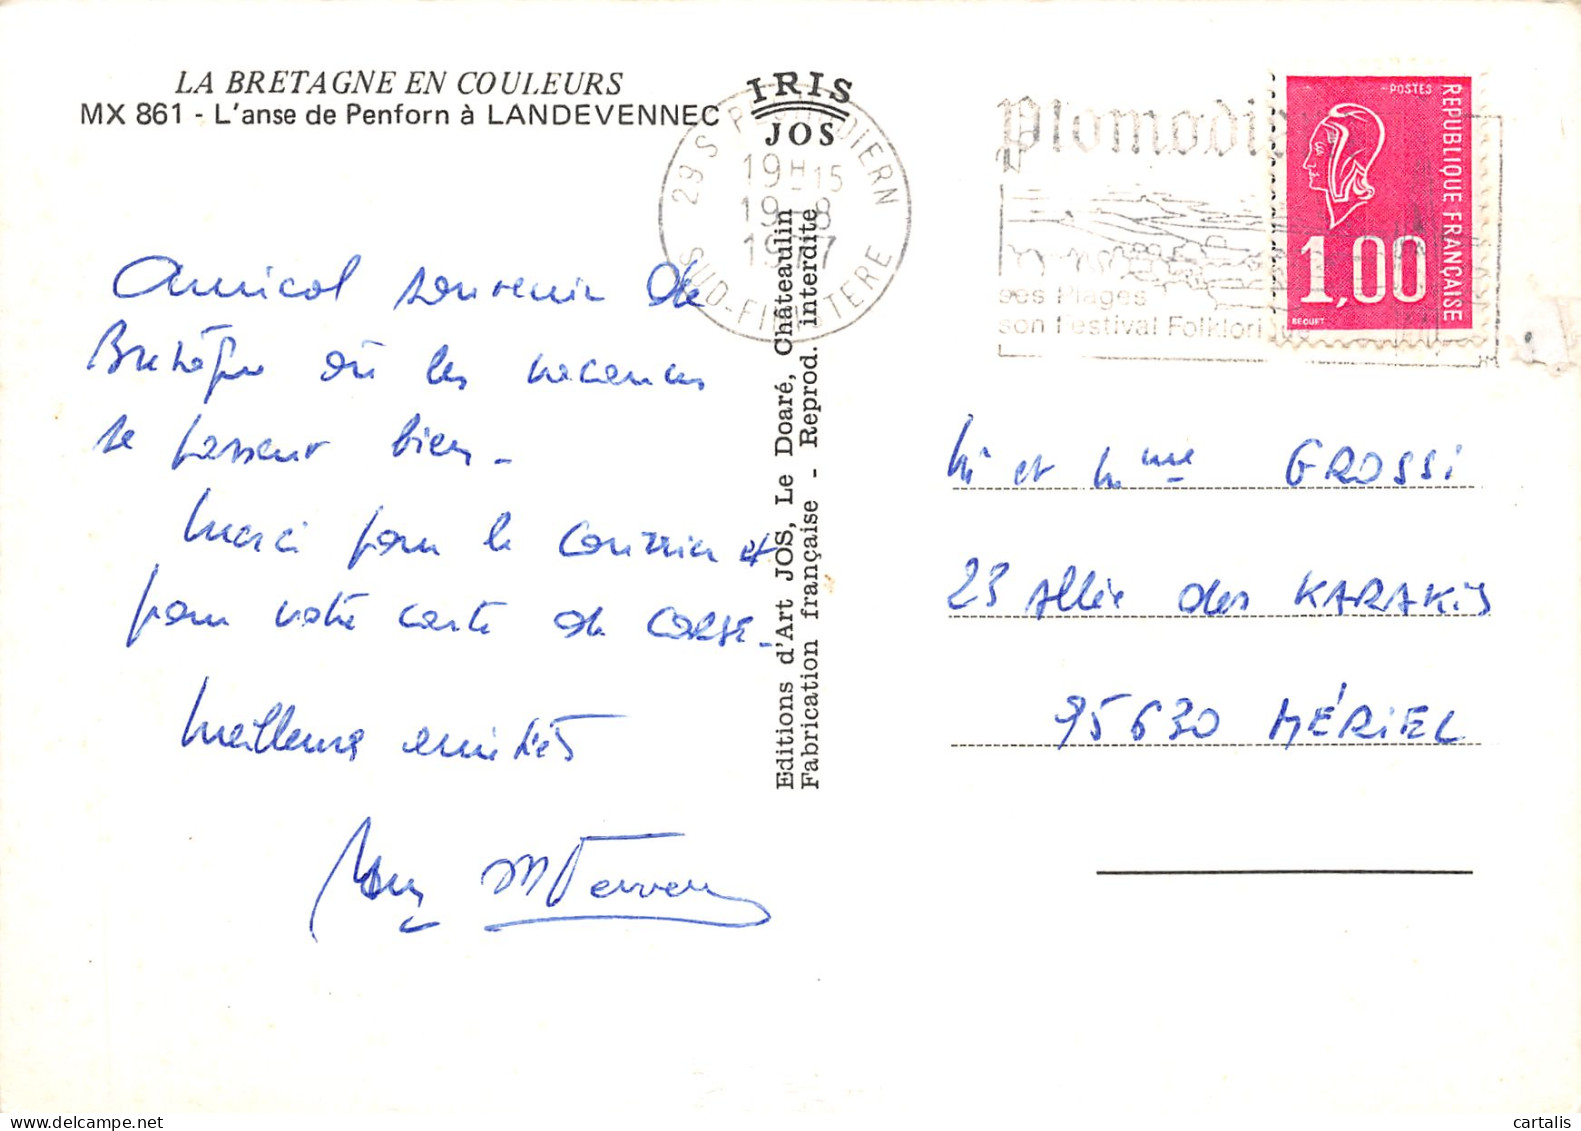 LA BRETAGNE EN COULEURS
MX 861 - L'anse de Penforn à LANDEVENNEC
IRIS
JOS
29 S PLOMODIERN
19H-15
19-8
1977
SUD-FINISTERE
Plomodiern
ses Plages
son Festival Folklorique
POSTES
REPUBLIQUE FRANÇAISE
1,00
BEQUET
Amical souvenir de
Bretagne où les vacances
se passent bien -
Merci pour le courrier et
pour votre carte de CORSE -
Meilleures amitiés
Editions d'Art JOS, Le Doaré, Châteaulin
Fabrication française - Reprod. interdite
Mr et Mme GROSSI
23 Allée des KARAKIS
95630 MÉRIEL
cartalis